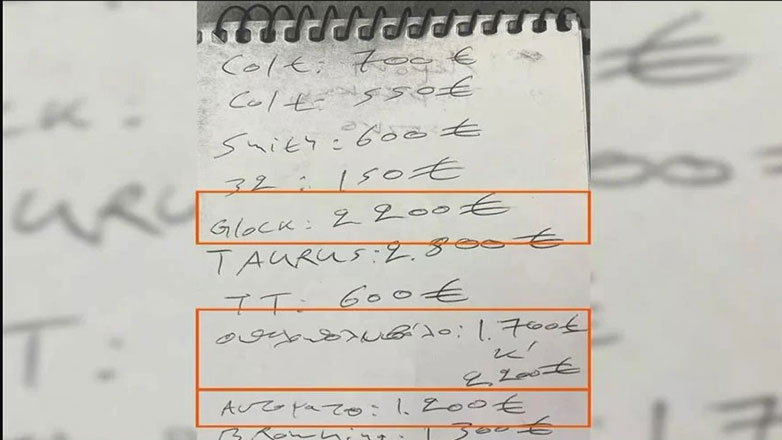 Colt: 700 €
Colt: 550 €
Smith: 600 €
32: 150 €
Glock: 2 200 €
TAURUS: 2.800 €
TT: 600 €
οπλοπολυβόλο: 1.700 €
κ'
2.200 €
Αυτοματο: 1.200 €
Browning: 1 300 €